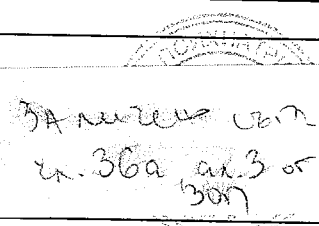 Заличено съгл.
чл. 36а ал. 3 от
ЗОП